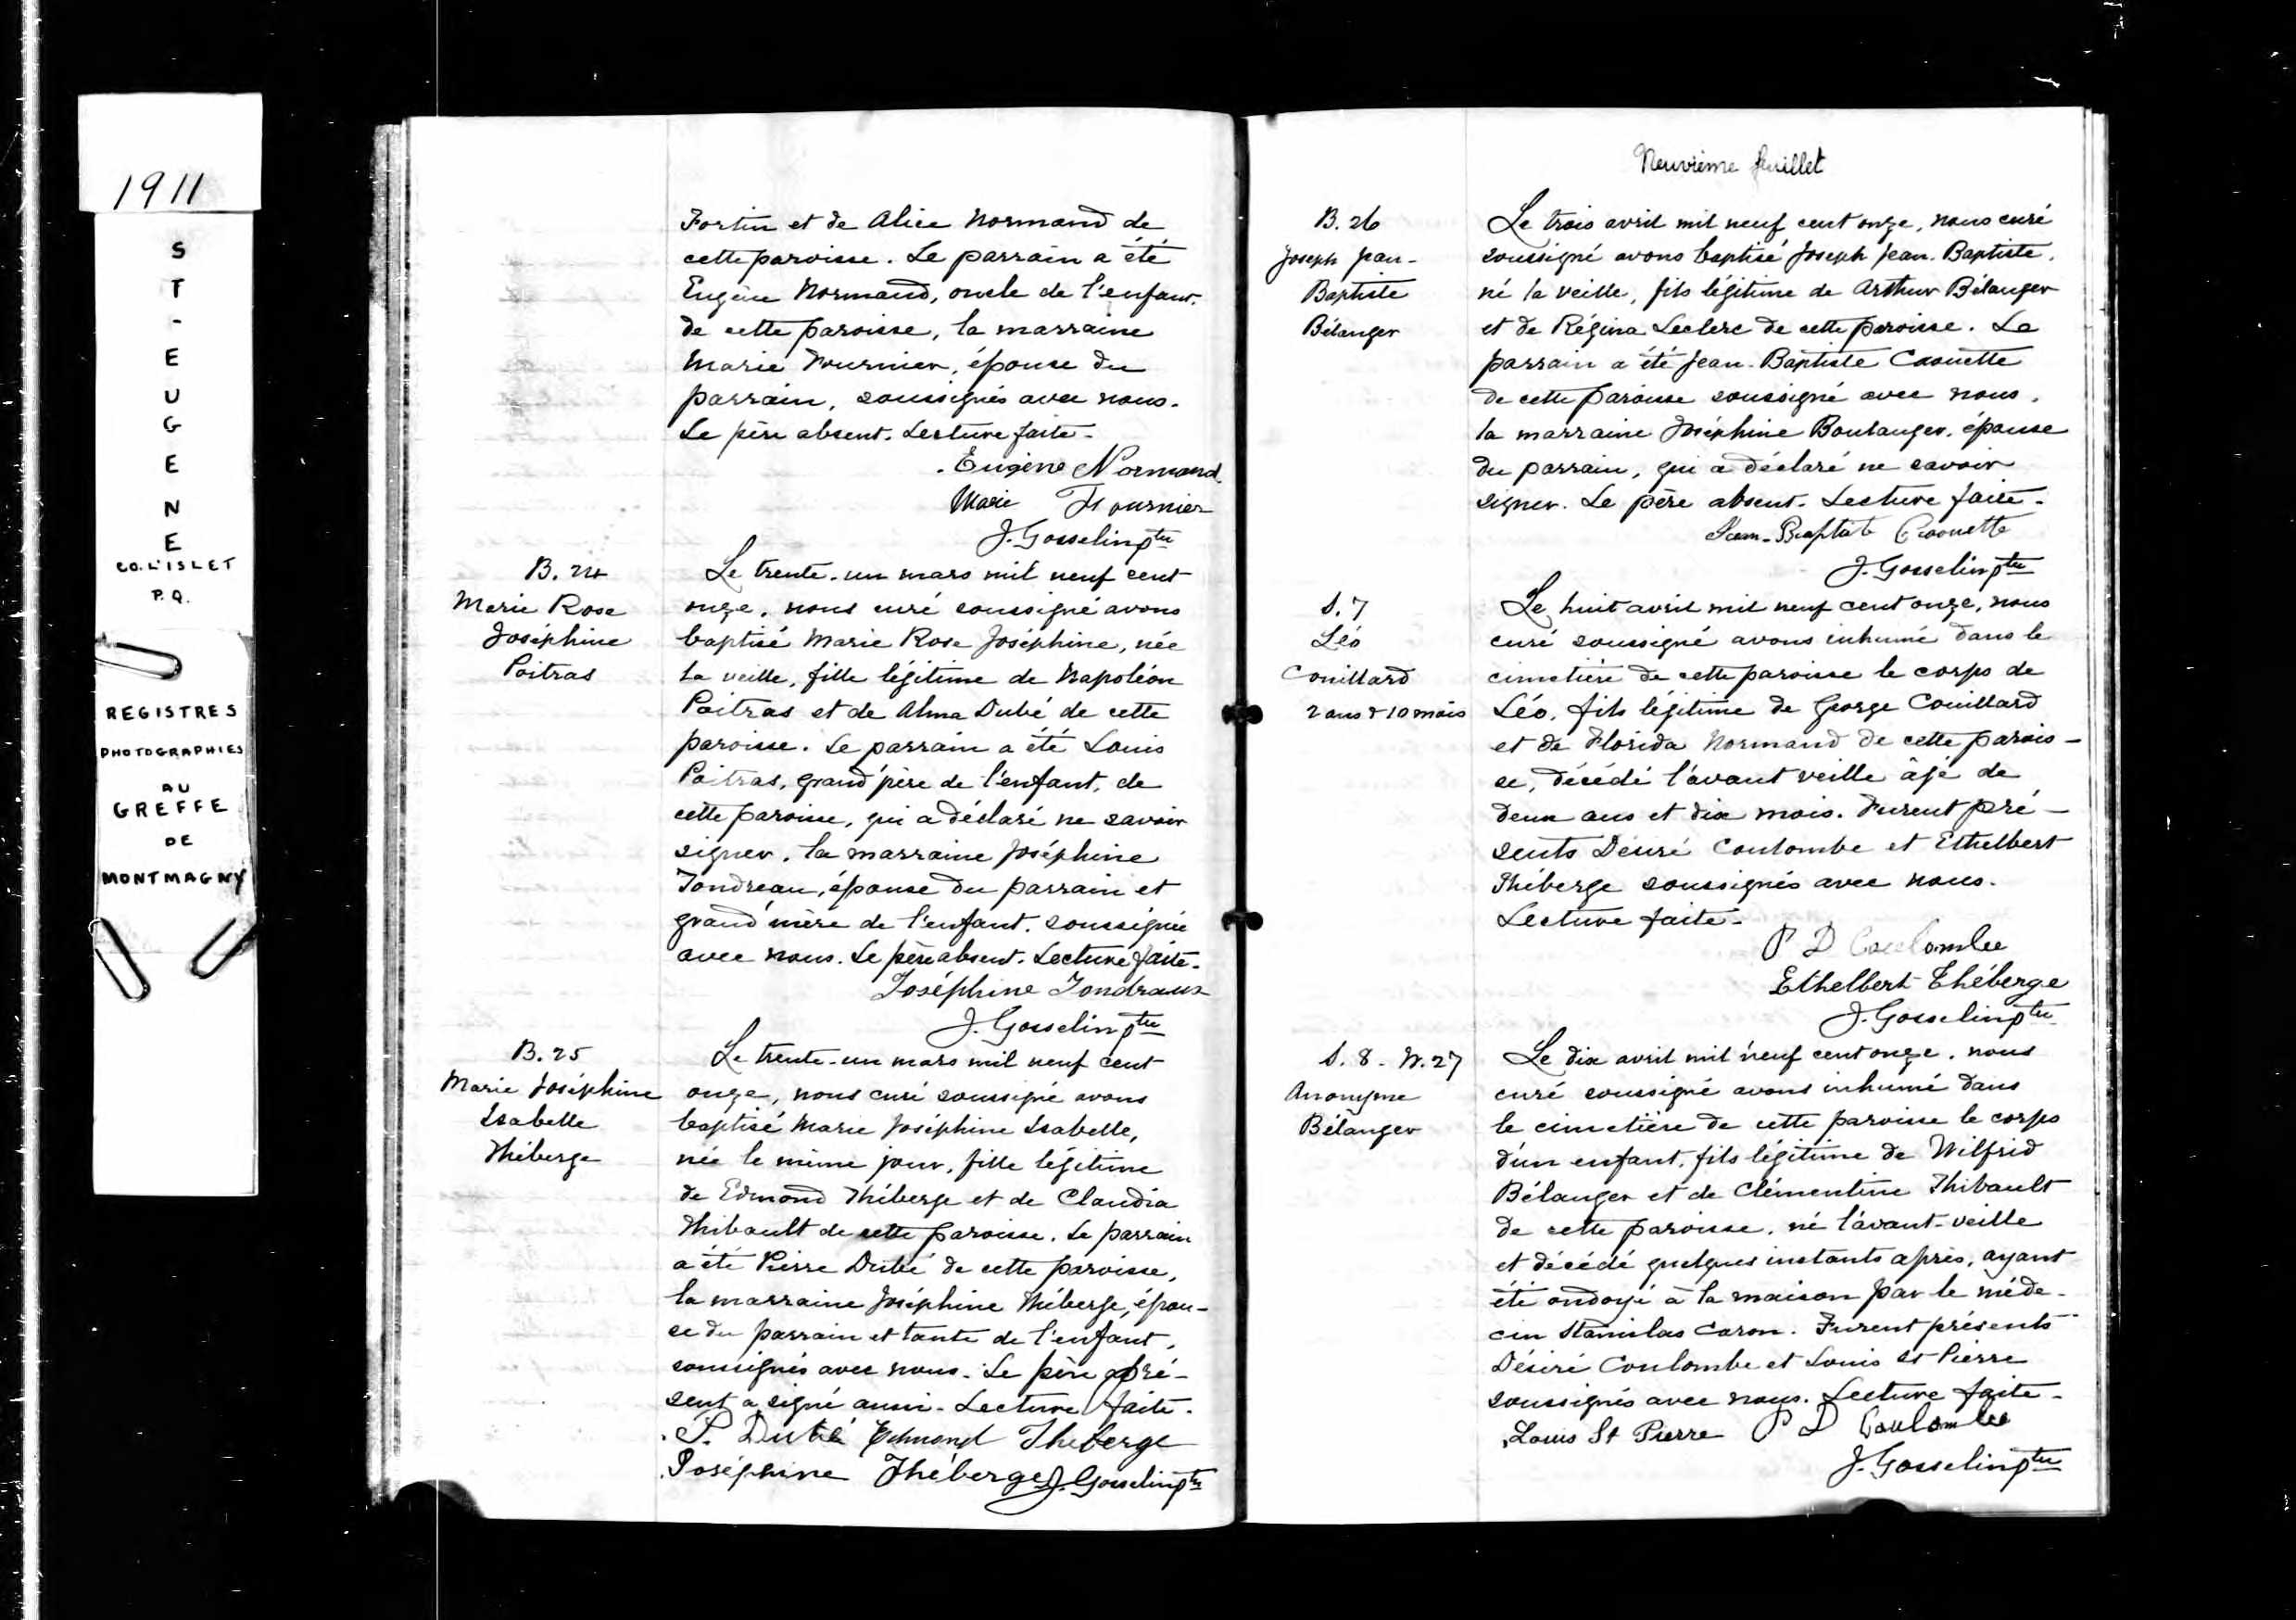 1911
S
T
-
E
U
G
E
N
E
CO. L'ISLET
P.Q.
REGISTRES
PHOTOGRAPHIES
AU
GREFFE
DE
MONTMAGNY
Fortin et de Alice Normand de
cette paroisse. Le parrain a été
Eugène Normand, oncle de l'enfant.
de cette paroisse, la marraine
Marie Fournier, épouse du
parrain, soussignés avec nous.
Le père absent. Lecture faite.
Eugène Normand
Marie Fournier
J. Gosselin ptre
B. 24
Marie Rose
Joséphine
Poitras
Le trente-un mars mil neuf cent
onze, nous curé soussigné avons
baptisé Marie Rose Joséphine, née
la veille, fille légitime de Napoléon
Poitras et de Alma Dubé de cette
paroisse. Le parrain a été Louis
Poitras, grand'père de l'enfant, de
cette paroisse, qui a déclaré ne savoir
signer, la marraine Joséphine
Tondreau, épouse du parrain et
grand'mère de l'enfant, soussignée
avec nous. Le père absent. Lecture faite.
Joséphine Tondraux
J. Gosselin ptre
B. 25
Marie Joséphine
Isabelle
Théberge
Le trente-un mars mil neuf cent
onze, nous curé soussigné avons
baptisé Marie Joséphine Isabelle,
née le même jour, fille légitime
de Edmond Théberge et de Claudia
Thibault de cette paroisse. Le parrain
a été Pierre Dubé de cette paroisse,
la marraine Joséphine Théberge, épou-
se du parrain et tante de l'enfant,
soussignés avec nous. Le père pré-
sent a signé aussi. Lecture faite.
P. Dubé Edmond Theberge
Joséphine Théberge J. Gosselin ptre
Neuvième feuillet
B. 26
Joseph Jean-
Baptiste
Bélanger
Le trois avril mil neuf cent onze, nous curé
soussigné avons baptisé Joseph Jean-Baptiste,
né la veille, fils légitime de Arthur Bélanger
et de Régina Leclerc de cette paroisse. Le
parrain a été Jean-Baptiste Caouette
de cette paroisse soussigné avec nous,
la marraine Joséphine Boulanger, épouse
du parrain, qui a déclaré ne savoir
signer. Le père absent. Lecture faite.
Jean-Baptiste Caouette
J. Gosselin ptre
S. 7
Léo
Couillard
2 ans & 10 mois
Le huit avril mil neuf cent onze, nous
curé soussigné avons inhumé dans le
cimetière de cette paroisse le corps de
Léo, fils légitime de George Couillard
et de Florida Normand de cette parois-
se, décédé l'avant veille âgé de
deux ans et dix mois. Furent pré-
sents Désiré Coulombe et Ethelbert
Théberge soussignés avec nous.
Lecture faite.
P D Coulombe
Ethelbert Théberge
J. Gosselin ptre
S. 8 - N. 27
Anonyme
Bélanger
Le dix avril mil neuf cent onze, nous
curé soussigné avons inhumé dans
le cimetière de cette paroisse le corps
d'un enfant, fils légitime de Wilfrid
Bélanger et de Clémentine Thibault
de cette paroisse, né l'avant-veille
et décédé quelques instants après, ayant
été ondoyé à la maison par le méde-
cin Stanislas Caron. Furent présents
Désiré Coulombe et Louis St Pierre
soussignés avec nous. Lecture faite.
Louis St Pierre P D Coulombe
J. Gosselin ptre